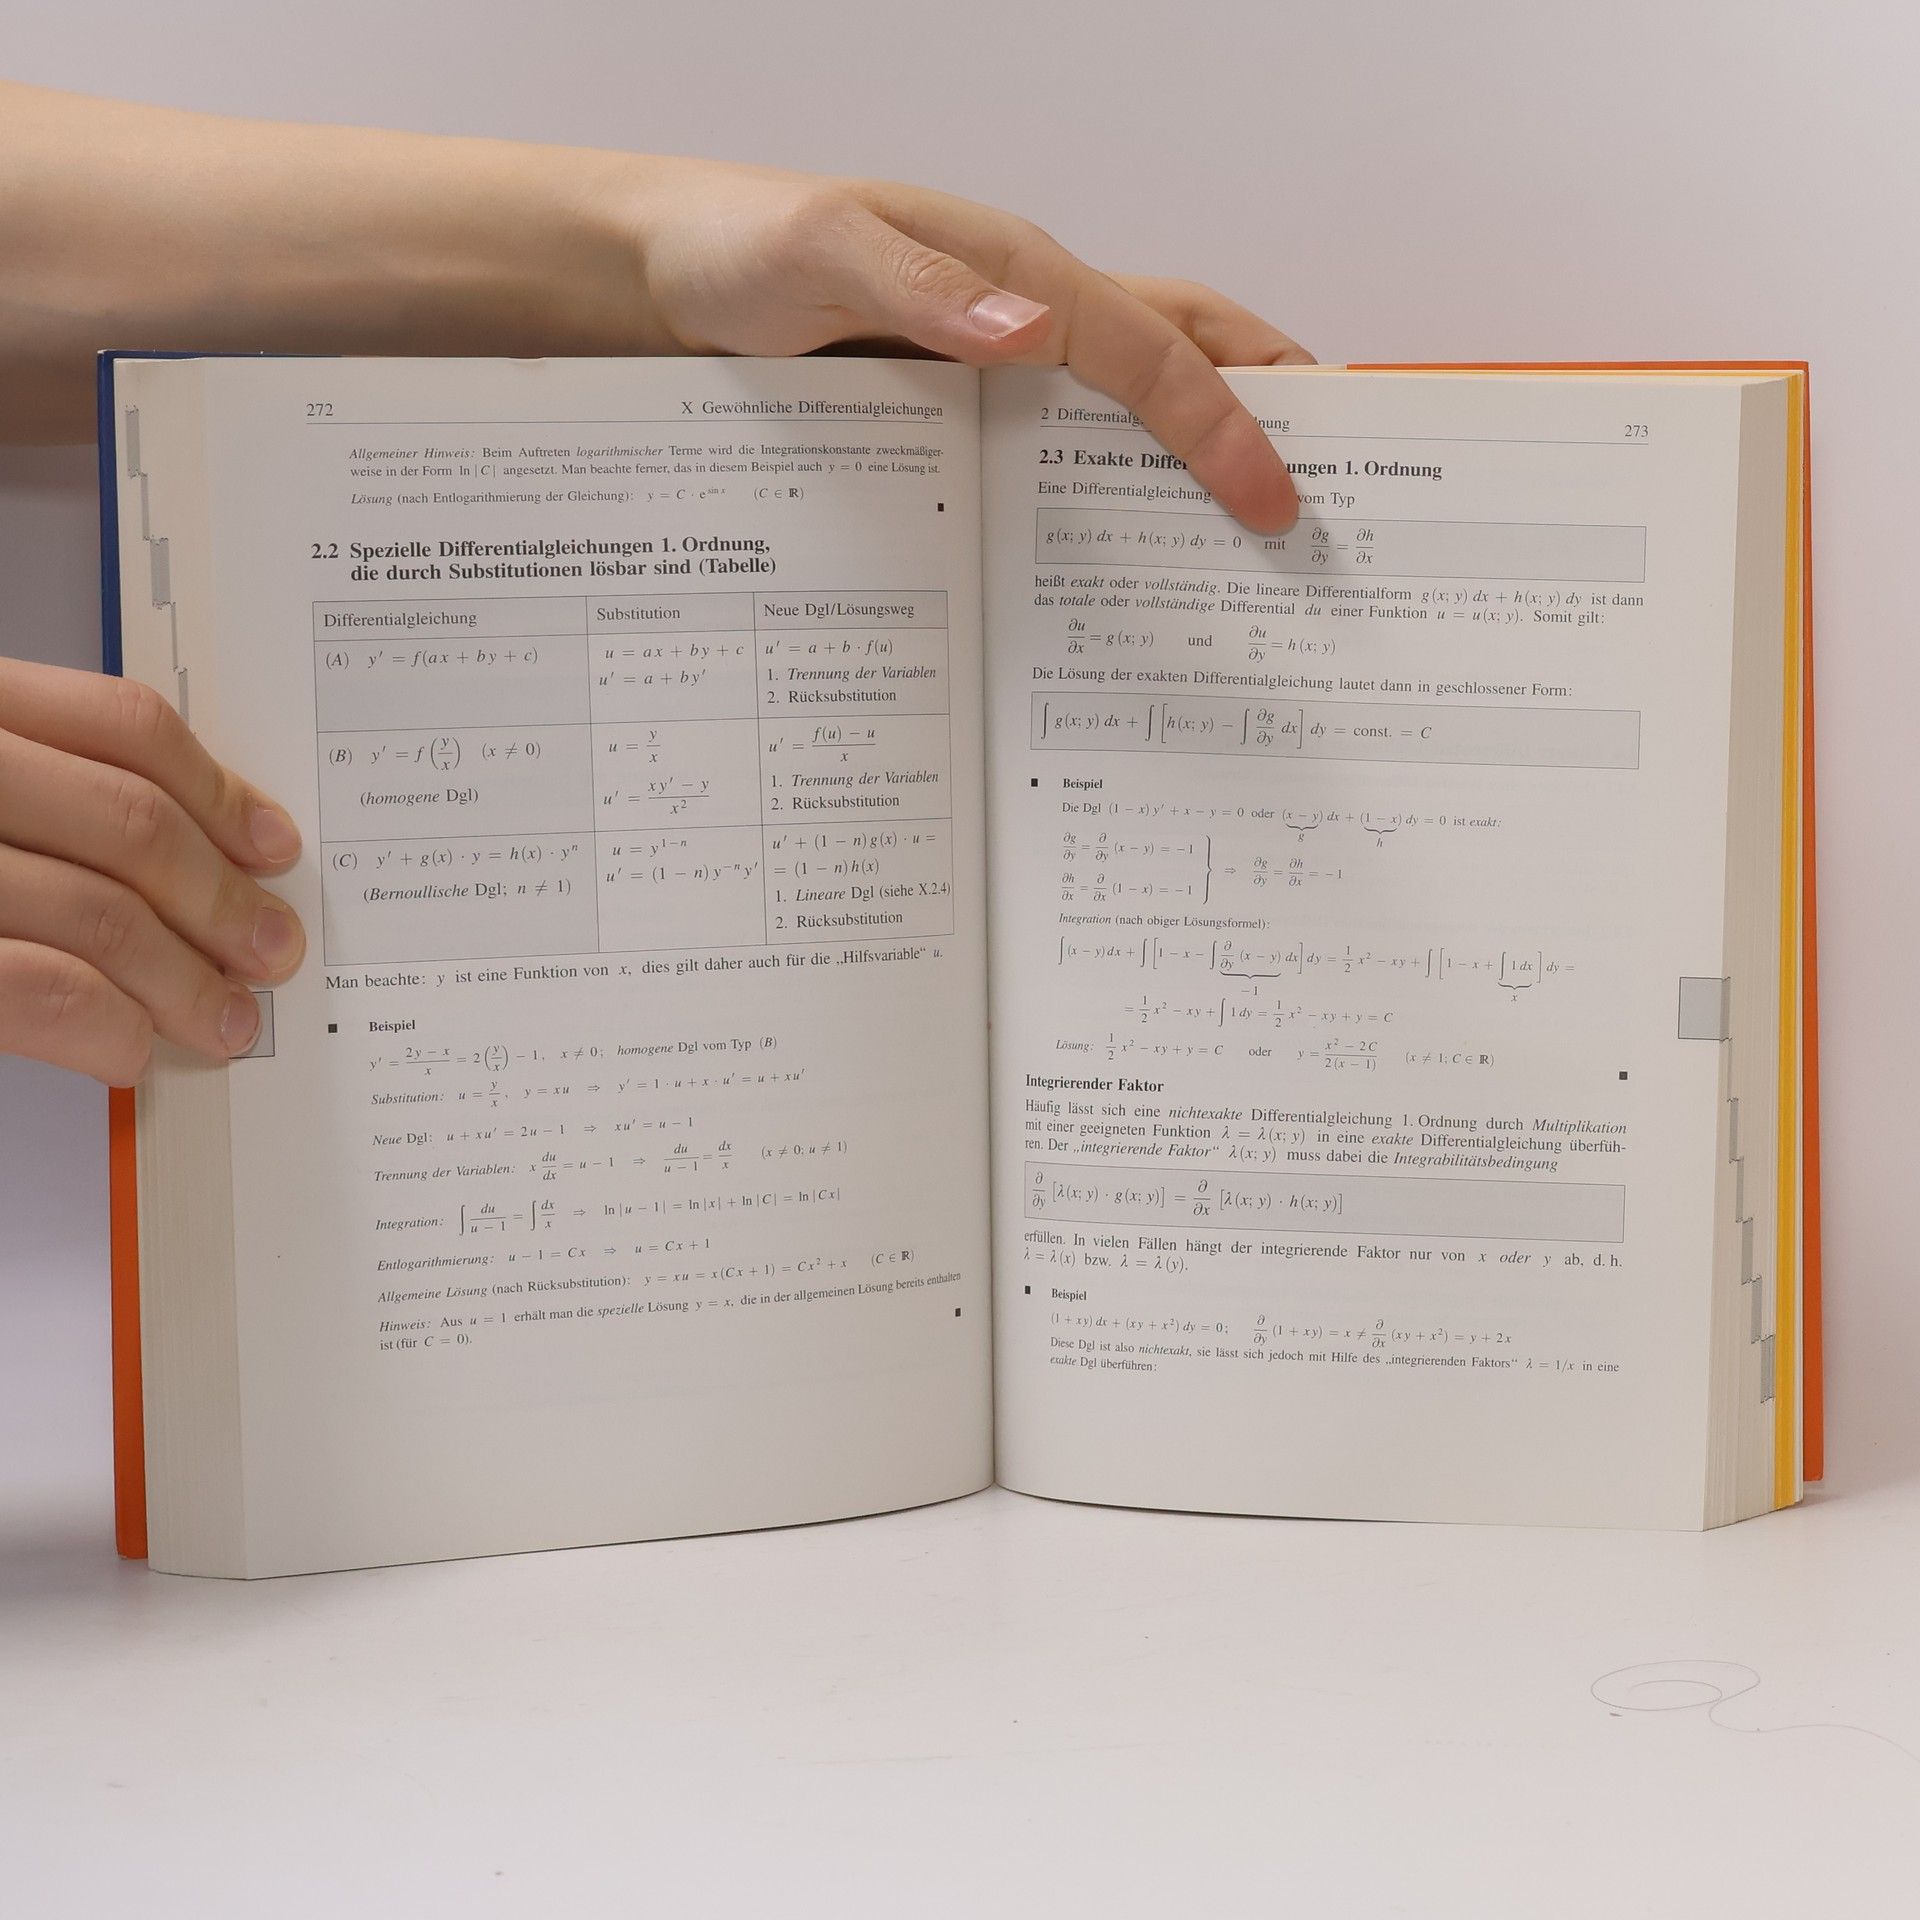 272 X Gewöhnliche Differentialgleichungen
Allgemeiner Hinweis: Beim Auftreten logarithmischer Terme wird die Integrationskonstante zweckmäßiger-
weise in der Form ln |C| angesetzt. Man beachte ferner, das in diesem Beispiel auch y = 0 eine Lösung ist.
Lösung (nach Entlogarithmierung der Gleichung): y = C · e^{sin x} (C ∈ ℝ)
2.2 Spezielle Differentialgleichungen 1. Ordnung,
die durch Substitutionen lösbar sind (Tabelle)
Differentialgleichung Substitution Neue Dgl/Lösungsweg
(A) y′ = f(ax + by + c) u = ax + by + c u′ = a + b · f(u)
u′ = a + by′ 1. Trennung der Variablen
2. Rücksubstitution
(B) y′ = f(y/x) (x ≠ 0) u = y/x u′ = (f(u) − u)/x
(homogene Dgl) u′ = (xy′ − y)/x² 1. Trennung der Variablen
2. Rücksubstitution
(C) y′ + g(x) · y = h(x) · yⁿ u = y^{1−n} u′ + (1 − n) g(x) · u =
(Bernoullische Dgl; n ≠ 1) u′ = (1 − n) y^{−n} y′ = (1 − n) h(x)
1. Lineare Dgl (siehe X.2.4)
2. Rücksubstitution
Man beachte: y ist eine Funktion von x, dies gilt daher auch für die „Hilfsvariable“ u.
■ Beispiel
y′ = (2y − x)/x = 2(y/x) − 1, x ≠ 0; homogene Dgl vom Typ (B)
Substitution: u = y/x, y = xu ⇒ y′ = 1 · u + x · u′ = u + xu′
Neue Dgl: u + xu′ = 2u − 1 ⇒ xu′ = u − 1
Trennung der Variablen: x du/dx = u − 1 ⇒ du/(u − 1) = dx/x (x ≠ 0; u ≠ 1)
Integration: ∫ du/(u − 1) = ∫ dx/x ⇒ ln |u − 1| = ln |x| + ln |C| = ln |Cx|
Entlogarithmierung: u − 1 = Cx ⇒ u = Cx + 1
Allgemeine Lösung (nach Rücksubstitution): y = xu = x(Cx + 1) = Cx² + x (C ∈ ℝ)
Hinweis: Aus u = 1 erhält man die spezielle Lösung y = x, die in der allgemeinen Lösung bereits enthalten
ist (für C = 0).
2 nung 273
2.3 Exakte ungen 1. Ordnung
Eine Differentialgleichung vom Typ
g(x; y) dx + h(x; y) dy = 0 mit ∂g/∂y = ∂h/∂x
heißt exakt oder vollständig. Die lineare Differentialform g(x; y) dx + h(x; y) dy ist dann
das totale oder vollständige Differential du einer Funktion u = u(x; y). Somit gilt:
∂u/∂x = g(x; y) und ∂u/∂y = h(x; y)
Die Lösung der exakten Differentialgleichung lautet dann in geschlossener Form:
∫ g(x; y) dx + ∫ [h(x; y) − ∫ ∂g/∂y dx] dy = const. = C
■ Beispiel
Die Dgl (1 − x) y′ + x − y = 0 oder (x − y) dx + (1 − x) dy = 0 ist exakt:
g h
∂g/∂y = ∂/∂y (x − y) = −1
⇒ ∂g/∂y = ∂h/∂x = −1
∂h/∂x = ∂/∂x (1 − x) = −1
Integration (nach obiger Lösungsformel):
∫ (x − y) dx + ∫ [1 − x − ∫ ∂/∂y (x − y) dx] dy = 1/2 x² − xy + ∫ [1 − x + ∫ 1 dx] dy =
−1 x
= 1/2 x² − xy + ∫ 1 dy = 1/2 x² − xy + y = C
Lösung: 1/2 x² − xy + y = C oder y = (x² − 2C)/(2(x − 1)) (x ≠ 1; C ∈ ℝ)
Integrierender Faktor
Häufig lässt sich eine nichtexakte Differentialgleichung 1. Ordnung durch Multiplikation
mit einer geeigneten Funktion λ = λ(x; y) in eine exakte Differentialgleichung überfüh-
ren. Der „integrierende Faktor“ λ(x; y) muss dabei die Integrabilitätsbedingung
∂/∂y [λ(x; y) · g(x; y)] = ∂/∂x [λ(x; y) · h(x; y)]
erfüllen. In vielen Fällen hängt der integrierende Faktor nur von x oder y ab, d. h.
λ = λ(x) bzw. λ = λ(y).
■ Beispiel
(1 + xy) dx + (xy + x²) dy = 0; ∂/∂y (1 + xy) = x ≠ ∂/∂x (xy + x²) = y + 2x
Diese Dgl ist also nichtexakt, sie lässt sich jedoch mit Hilfe des „integrierenden Faktors“ λ = 1/x in eine
exakte Dgl überführen: